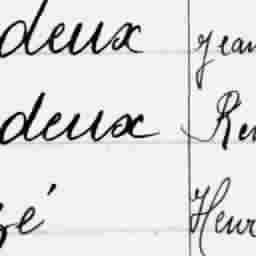 deux jean
deux Ren
gé Henr